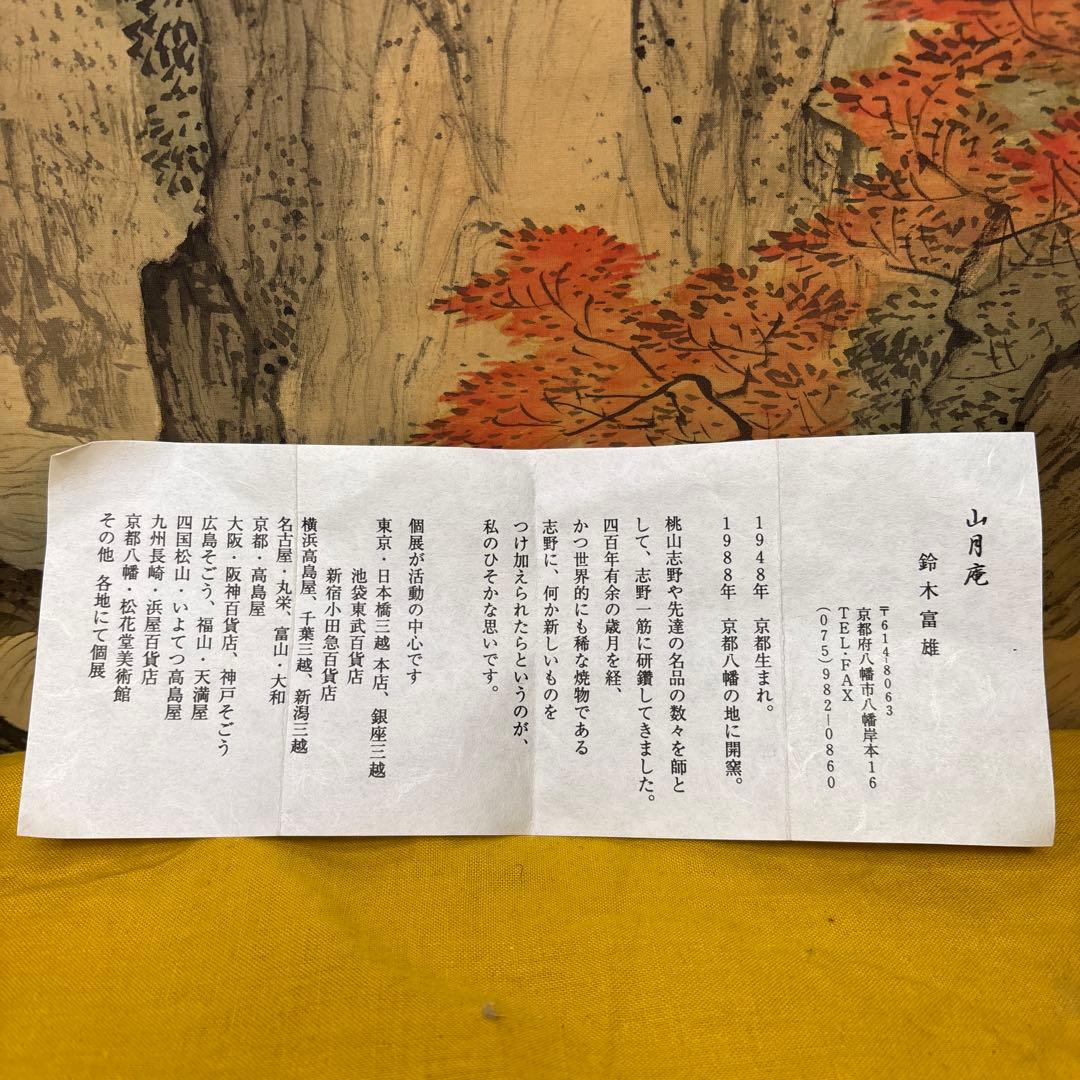 山月庵
鈴木富雄
〒614-8063
京都府八幡市八幡岸本16
TEL・FAX
(075)982-0860
1948年 京都生まれ。
1988年 京都八幡の地に開窯。
桃山志野や先達の名品の数々を師と
して、志野一筋に研鑽してきました。
四百年有余の歳月を経、
かつ世界的にも稀な焼物である
志野に、何か新しいものを
つけ加えられたらというのが、
私のひそかな思いです。
個展が活動の中心です
東京・日本橋三越 本店、銀座三越
池袋東武百貨店
新宿小田急百貨店
横浜高島屋、千葉三越、新潟三越
名古屋・丸栄、富山・大和
京都・高島屋
大阪・阪神百貨店、神戸そごう
広島そごう、福山・天満屋
四国松山・いよてつ高島屋
九州長崎・浜屋百貨店
京都八幡・松花堂美術館
その他 各地にて個展